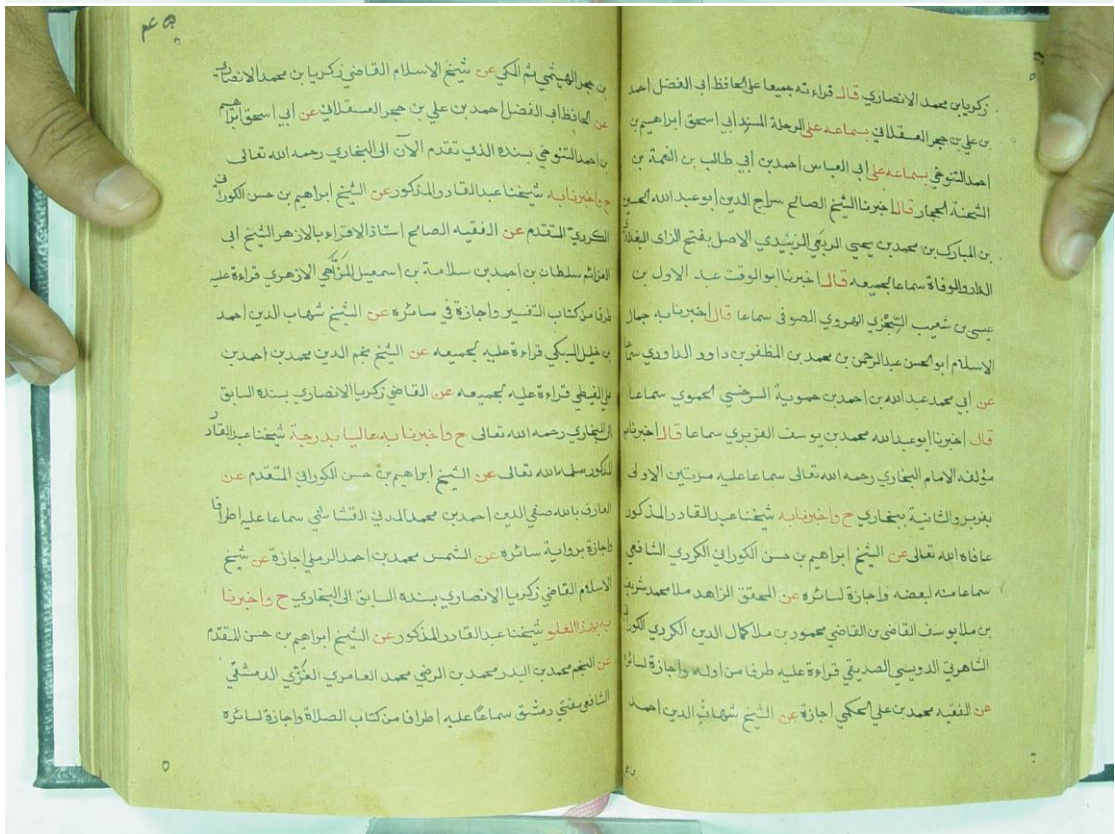 زكريا بن محمد الانصاري قال قراءته جميعا على الحافظ ابي الفضل احمد
بن علي بن حجر العسقلاني بسماعه على الرحلة المسند ابي اسحق ابراهيم بن
احمد التنوخي بسماعه على ابي العباس احمد بن ابي طالب بن النعمة بن
الشحنة الحجار قال اخبرنا الشيخ الصالح سراج الدين ابو عبد الله الحسين
بن المبارك بن محمد بن يحيى الربعي الزبيدي الاصل بفتح الزاى البغدادي
الدار والوفاة سماعا لجميعه قال اخبرنا ابو الوقت عبد الاول بن
عيسى بن شعيب السجزي الهروي الصوفي سماعا قال اخبرنا به جمال
الاسلام ابو الحسن عبد الرحمن بن محمد بن المظفر بن داود الداودي سماعا
عن ابي محمد عبد الله بن احمد بن حموية السرخسي الحموي سماعا
قال اخبرنا ابو عبد الله محمد بن يوسف الفربري سماعا قال اخبرنا به
مؤلفه الامام البخاري رحمه الله تعالى سماعا عليه مرتين الاولى
بفربر والثانية ببخاري ح واخبرنا به شيخنا عبد القادر المذكور
عافاه الله تعالى عن الشيخ ابراهيم بن حسن الكوراني الكردي الشافعي
سماعا منه لبعضه واجازة لسائره عن المحقق الزاهد ملا محمد شريف
بن ملا يوسف القاضي بن القاضي محمود بن ملا كمال الدين الكردي الكوراني
الصديقي قراءة عليه طرفا من اوله واجازة لسائره
عن الفقيه محمد بن علي الحكمي اجازة عن الشيخ شهاب الدين احمد
بن حجر الهيثمي ثم المكي عن شيخ الاسلام القاضي زكريا بن محمد الانصاري
عن الحافظ ابي الفضل احمد بن علي بن حجر العسقلاني عن ابي اسحق ابراهيم
بن احمد التنوخي بسنده الذي تقدم الآن الى البخاري رحمه الله تعالى
ح واخبرنا به شيخنا عبد القادر المذكور عن الشيخ ابراهيم بن حسن الكوراني
الكردي المتقدم عن الفقيه الصالح استاذ الاقراء بالازهر الشيخ ابي
العزائم سلطان بن احمد بن سلامة بن اسمعيل المزاحي الازهري قراءة عليه
طرفا من كتاب التفسير واجازة في سائره عن الشيخ شهاب الدين احمد
بن خليل السبكي قراءة عليه لجميعه عن الشيخ نجم الدين محمد بن احمد بن
علي الغيطي قراءة عليه لجميعه عن القاضي زكريا الانصاري بسنده السابق
الى البخاري رحمه الله تعالى ح واخبرنا به عاليا بدرجة شيخنا عبد القادر
المذكور سلمه الله تعالى عن الشيخ ابراهيم بن حسن الكوراني المتقدم عن
العارف بالله صفي الدين احمد بن محمد المدني القشاشي سماعا عليه اطرافا
واجازة برواية سائره عن الشمس محمد بن احمد الرملي اجازة عن شيخ
الاسلام القاضي زكريا الانصاري بسنده السابق الى البخاري ح واخبرنا
به بهذا العلو شيخنا عبد القادر المذكور عن الشيخ ابراهيم بن حسن المتقدم
عن النجم محمد بن البدر محمد بن الرضي محمد العامري الغزي الدمشقي
الشافعي مفتي دمشق سماعا عليه اطرافا من كتاب الصلاة واجازة لسائره